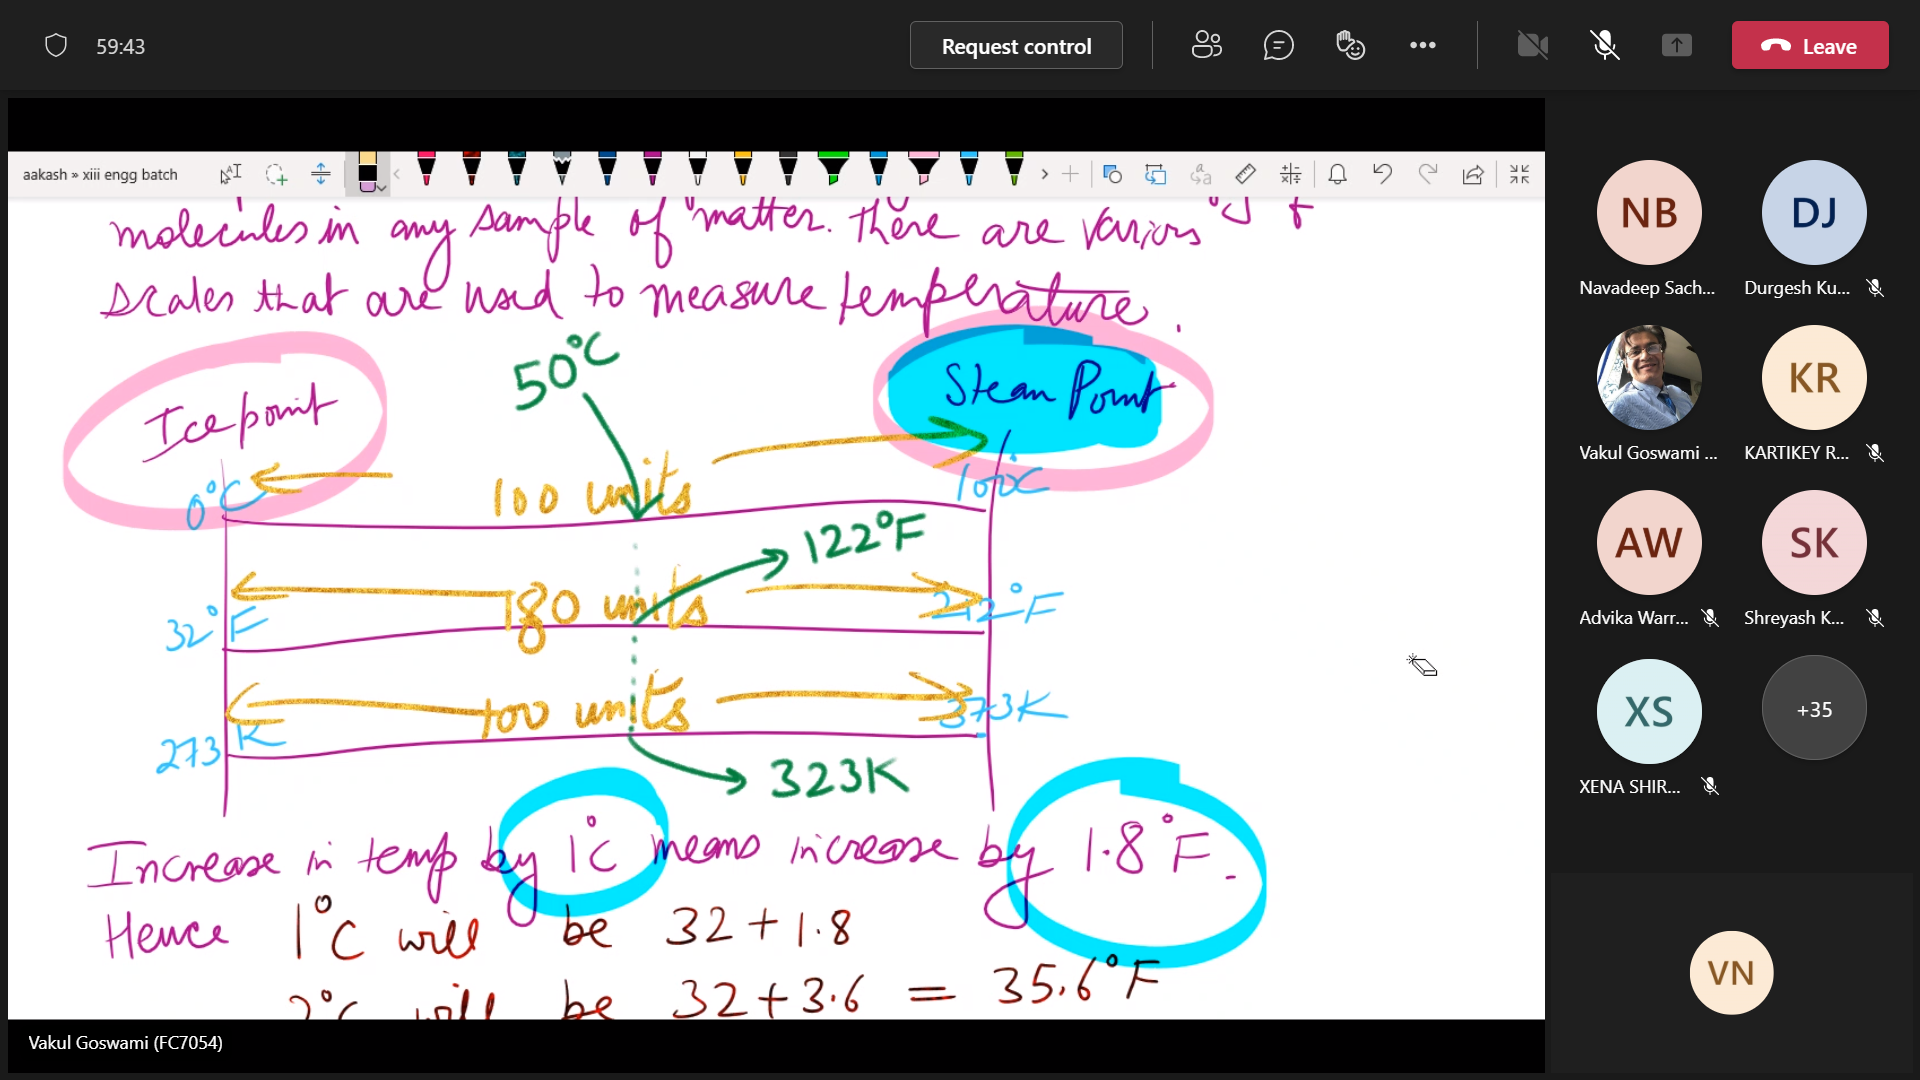 59:43
Request control
Leave
aakash » xiii engg batch
molecules in any sample of matter. There are various
scales that are used to measure temperature.
50°C
Ice point
Steam Point
0°C
100 units
100°C
122°F
180 units
32°F
212°F
100 units
273 K
373K
323K
Increase in temp by 1°C means increase by 1.8°F.
Hence 1°C will be 32 + 1.8
2°C will be 32 + 3.6 = 35.6°F
Vakul Goswami (FC7054)
NB
DJ
Navadeep Sach...
Durgesh Ku...
KR
Vakul Goswami ...
KARTIKEY R...
AW
SK
Advika Warr...
Shreyash K...
XS
+35
XENA SHIR...
VN